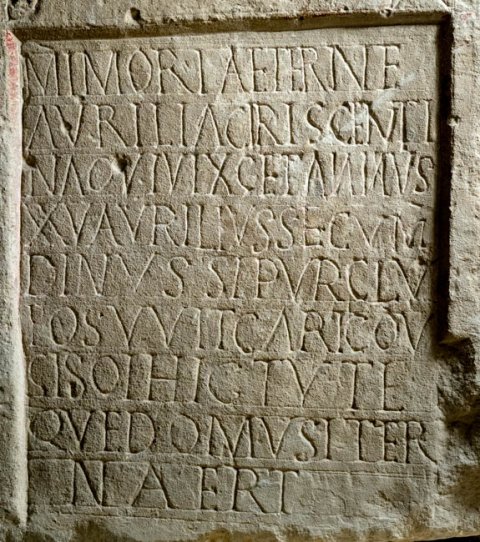 MIIMORIAETERNE
AVRILIACRISCENTI
NAQVIVIXCETANNVS
XVAVRILIVSSECVM
DINVSSIPVRCLV
LOSVVITCARICOV
CISOIHICTVTE
QVEDOMVSITER
NAERT